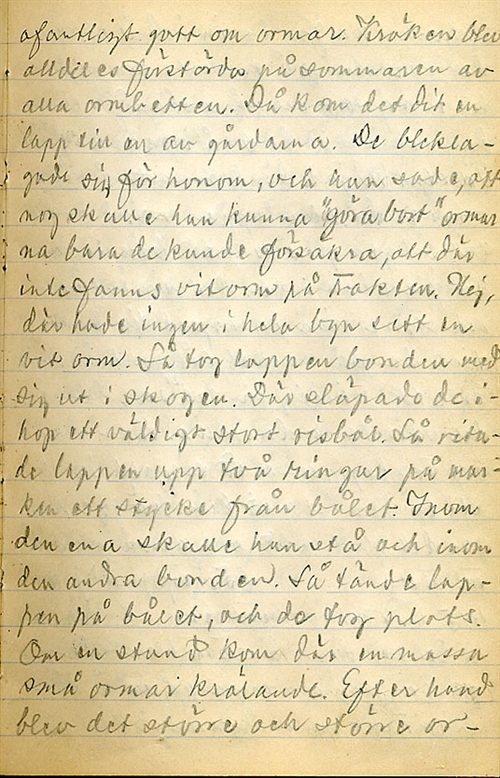 ofantligt gott om ormar. Kräken blev
alldeles förstörda på sommaren av
alla ormbetten. Då kom det dit en
lapp till en av gårdarna. De bekla-
gade sig för honom, och han sade, att
nog skulle han kunna "göra bort" ormar
na bara de kunde försäkra, att där
inte fanns vitorm på trakten. Nej,
där hade ingen i hela byn sett en
vit orm. Så tog lappen bonden med
sig ut i skogen. Där släpade de i-
hop ett väldigt stort risbål. Så rita-
de lappen upp två ringar på mar-
ken ett stycke från bålet. Inom
den ena skulle han stå och inom
den andra bonden. Så tände lap-
pen på bålet, och de tog plats.
Om en stund kom där en massa
små ormar krälande. Efter hand
blev det större och större or-